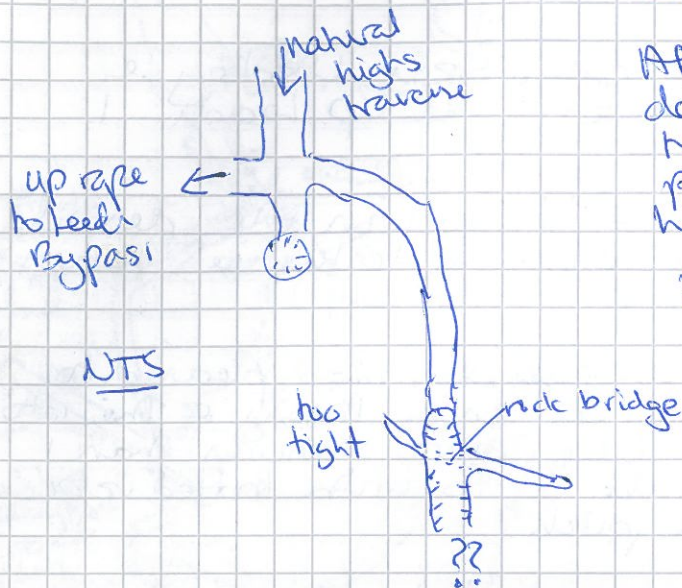 natural
highs
traverse
up rope
to Leeds
Bypass
NTS
too
tight
rock bridge
??
Af